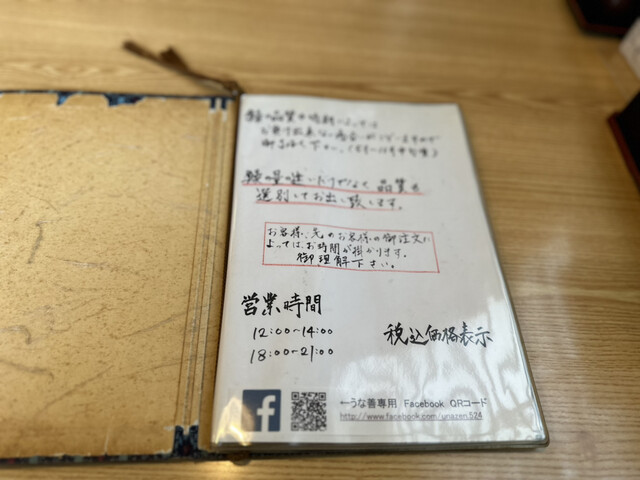 鰻の品質や時期によっては
お客様、先のお客様の御注文に
よっては、お時間が掛かります。
御理解下さい。
鰻の量の違いだけでなく、品質も
選別してお出し致します。
営業時間
12:00~14:00
18:00~21:00
税込価格表示
f
←うな善専用 Facebook QRコード
http://www.facebook.com/unazen.524